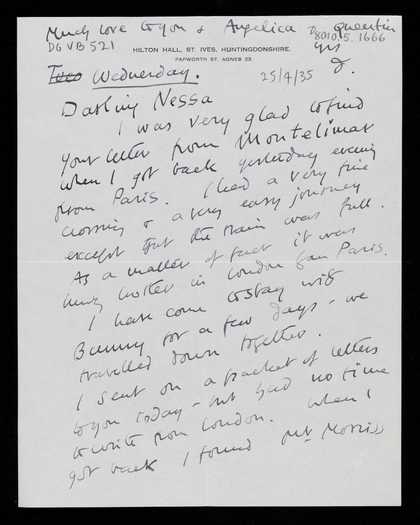 Much love to you & Angelica & Quentin
DG VB 521
8010.5.1666
yrs
D.
HILTON HALL, ST. IVES, HUNTINGDONSHIRE.
PAPWORTH ST. AGNES 23.
Tues Wednesday.
25/4/35
Darling Nessa
I was very glad to find
your letter from Montelimar
when I got back yesterday evening
from Paris. I had a very fine
crossing & a very easy journey
except that the train was full.
As a matter of fact it was
much hotter in London than Paris.
I have come to stay with
Bunny for a few days - we
travelled down together.
I sent on a packet of letters
to you today - but had no time
to write from London. When I
got back I found Mrs Morris